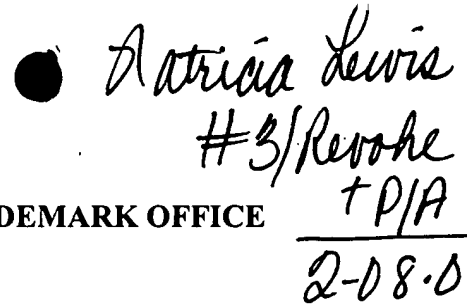 Patricia Lewis
#3/Revoke
+ P/A
DEMARK OFFICE
2-08-0